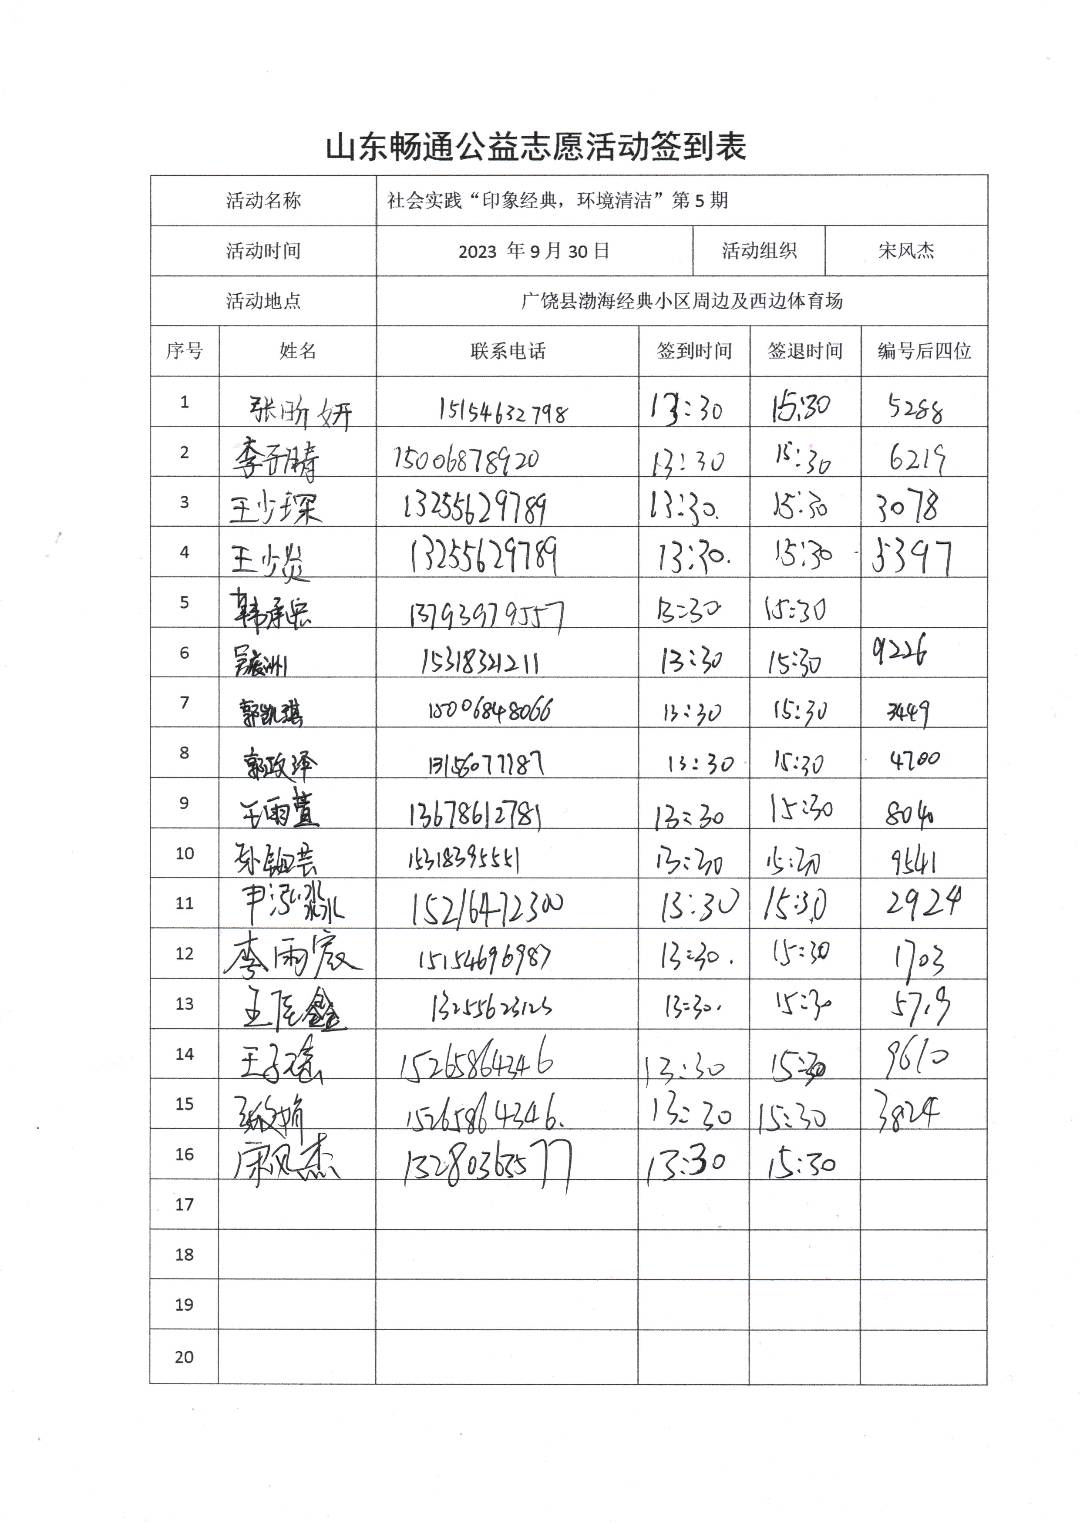 山东畅通公益志愿活动签到表
活动名称 社会实践“印象经典，环境清洁”第 5 期
活动时间 2023 年 9 月 30 日 活动组织 宋风杰
活动地点 广饶县渤海经典小区周边及西边体育场
序号 姓名 联系电话 签到时间 签退时间 编号后四位
1 张昕妍 15154632798 13:30 15:30 5288
2 李子晴 15006878920 13:30 15:30 6219
3 王少琛 13255629789 13:30. 15:30 3078
4 王少炎 13255629789 13:30. 15:30 5397
5 韩承宏 13793979557 13:30 15:30
6 15318321211 13:30 15:30 9226
7 郭凯琪 15006848066 13:30 15:30 3449
8 郭政泽 13:30 15:30 4700
9 王雨萱 13678612781 13:30 15:30 8040
10 15318395551 13:30 15:30 9541
11 尹泓淼 15216472300 13:30 15:30 2924
12 李雨宸 15154696987 13:30. 15:30 1703
13 13255623123 13:30. 15:30 5719
14 15265864346 13:30 15:30 9610
15 15265864346. 13:30 15:30 3824
16 宋风杰 13280363577 13:30 15:30
17
18
19
20